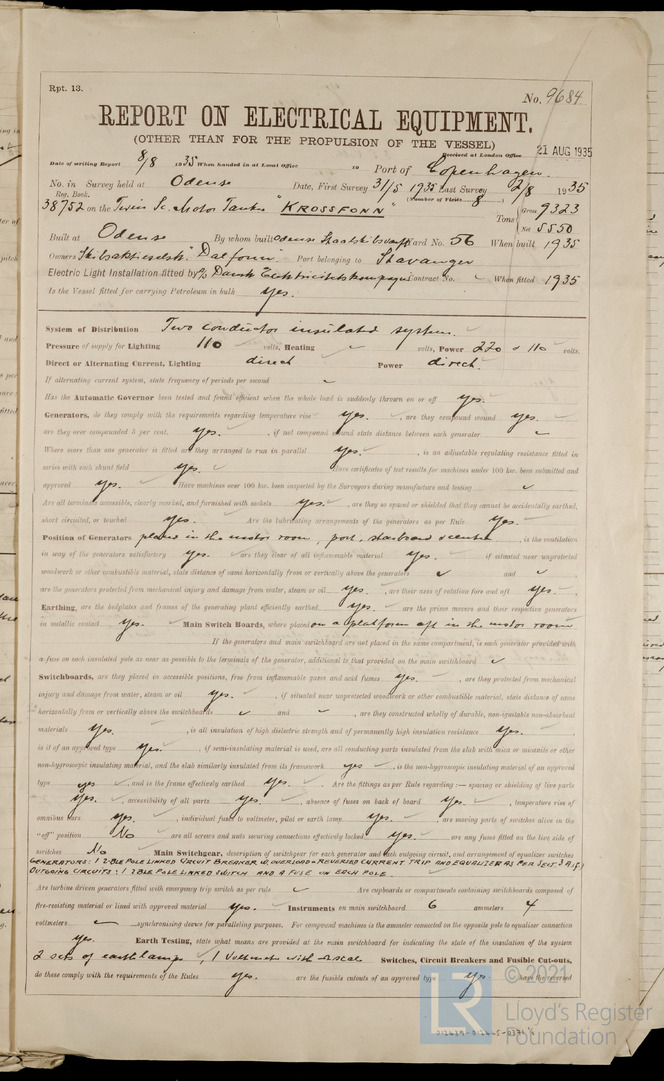 Rpt. 13.
No. 9684
REPORT ON ELECTRICAL EQUIPMENT.
(OTHER THAN FOR THE PROPULSION OF THE VESSEL)
Received at London Office 21 AUG 1935
Date of writing Report 8/8 1935 When handed in at Local Office 19 Port of Copenhagen
No. in Survey held at Odense Date, First Survey 31/5 1935 Last Survey 2/8 1935
Reg. Book. (Number of Visits 8
38752 on the Twin Sc. Motor Tanker "KROSSFONN" Tons Gross 9323 Net 5550
Built at Odense By whom built Odense Staalskibsværft Yard No. 56 When built 1935
Owners Skibsaktieselsk. Dalfonn Port belonging to Stavanger
Electric Light Installation fitted by Dansk Elektricitetskompagni Contract No. When fitted 1935
Is the Vessel fitted for carrying Petroleum in bulk yes.
System of Distribution Two conductor insulated system.
Pressure of supply for Lighting 110 volts, Heating volts, Power 220 & 110 volts.
Direct or Alternating Current, Lighting direct Power direct.
If alternating current system, state frequency of periods per second
Has the Automatic Governor been tested and found efficient when the whole load is suddenly thrown on or off yes.
Generators, do they comply with the requirements regarding temperature rise yes. , are they compound wound yes.
are they over compounded 5 per cent. yes. , if not compound wound state distance between each generator
Where more than one generator is fitted are they arranged to run in parallel yes. , is an adjustable regulating resistance fitted in
series with each shunt field yes. Have certificates of test results for machines under 100 kw. been submitted and
approved yes. Have machines over 100 kw. been inspected by the Surveyors during manufacture and testing
Are all terminals accessible, clearly marked, and furnished with sockets yes. , are they so spaced or shielded that they cannot be accidentally earthed,
short circuited, or touched yes. Are the lubricating arrangements of the generators as per Rule yes.
Position of Generators placed in the motor room, port, starboard & center , is the ventilation
in way of the generators satisfactory yes. are they clear of all inflammable material yes. if situated near unprotected
woodwork or other combustible material, state distance of same horizontally from or vertically above the generators and
are the generators protected from mechanical injury and damage from water, steam or oil yes. , are their axes of rotation fore and aft yes.
Earthing, are the bedplates and frames of the generating plant efficiently earthed yes. are the prime movers and their respective generators
in metallic contact yes. Main Switch Boards, where placed on a platform aft in the motor room
If the generators and main switchboard are not placed in the same compartment, is each generator provided with
a fuse on each insulated pole as near as possible to the terminals of the generator, additional to that provided on the main switchboard
Switchboards, are they placed in accessible positions, free from inflammable gases and acid fumes yes. , are they protected from mechanical
injury and damage from water, steam or oil yes. , if situated near unprotected woodwork or other combustible material, state distance of same
horizontally from or vertically above the switchboards and , are they constructed wholly of durable, non-ignitable non-absorbent
materials yes. , is all insulation of high dielectric strength and of permanently high insulation resistance yes.
is it of an approved type yes. , if semi-insulating material is used, are all conducting parts insulated from the slab with mica or micanite or other
non-hygroscopic insulating material, and the slab similarly insulated from its framework yes , is the non-hygroscopic insulating material of an approved
type yes , and is the frame effectively earthed yes. Are the fittings as per Rule regarding :— spacing or shielding of live parts
yes. , accessibility of all parts yes. , absence of fuses on back of board yes. , temperature rise of
omnibus bars yes. , individual fuses to voltmeter, pilot or earth lamp yes. , are moving parts of switches alive in the
"off" position No are all screws and nuts securing connections effectively locked yes. are any fuses fitted on the live side of
switches No Main Switchgear, description of switchgear for each generator and each outgoing circuit, and arrangement of equalizer switches
GENERATORS: 1 2-BLE POLE LINKED CIRCUIT BREAKER W. OVERLOAD & REVERSED CURRENT TRIP AND EQUALIZER AS PER SECT. 3
OUTGOING CIRCUITS: 1 2-BLE POLE LINKED SWITCH AND A FUSE ON EACH POLE
Are turbine driven generators fitted with emergency trip switch as per rule Are cupboards or compartments containing switchboards composed of
fire-resisting material or lined with approved material yes. Instruments on main switchboard 6 ammeters 4
voltmeters synchronising device for paralleling purposes. For compound machines is the ammeter connected on the opposite pole to equaliser connection
yes. Earth Testing, state what means are provided at the main switchboard for indicating the state of the insulation of the system
2 sets of earth lamps, 1 Voltmeter with scale Switches, Circuit Breakers and Fusible Cut-outs,
do these comply with the requirements of the Rules yes. are the fusible cutouts of an approved type yes. have the reversed
© 2021
LR
Lloyd's Register
Foundation